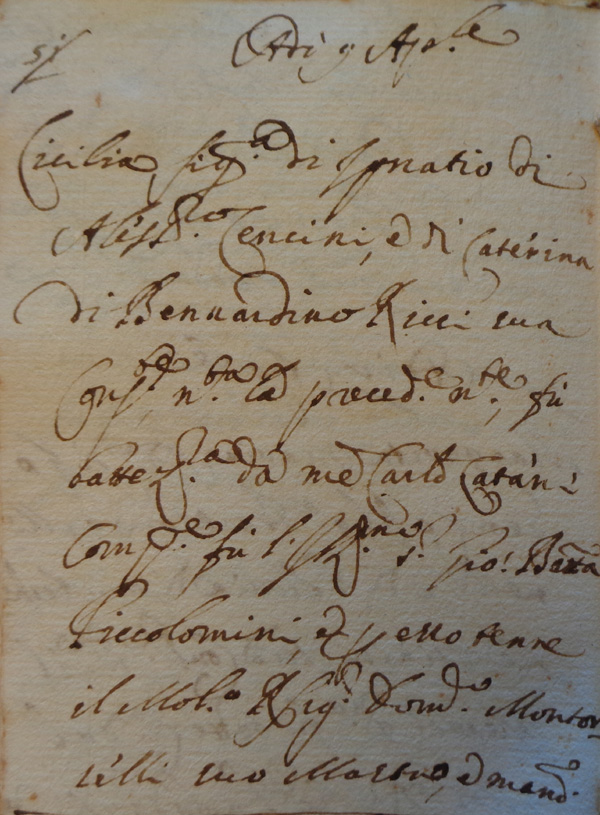 Adì 9 Ap.le
Cicilia fig.a di Ignatio di
Aless.ro Cencini, e di Caterina
di Bernardino Ricci sua
Cons.te n.ta la preced.e n.te, fu
battez.ta da me Carlo Catani
Comp.e fu l'Ill.mo s. Gio: Batta
Piccolomini, e per esso tenne
il Mol.o R. Sig.r Dom.o Montor
selli suo Mastro, e mand.o